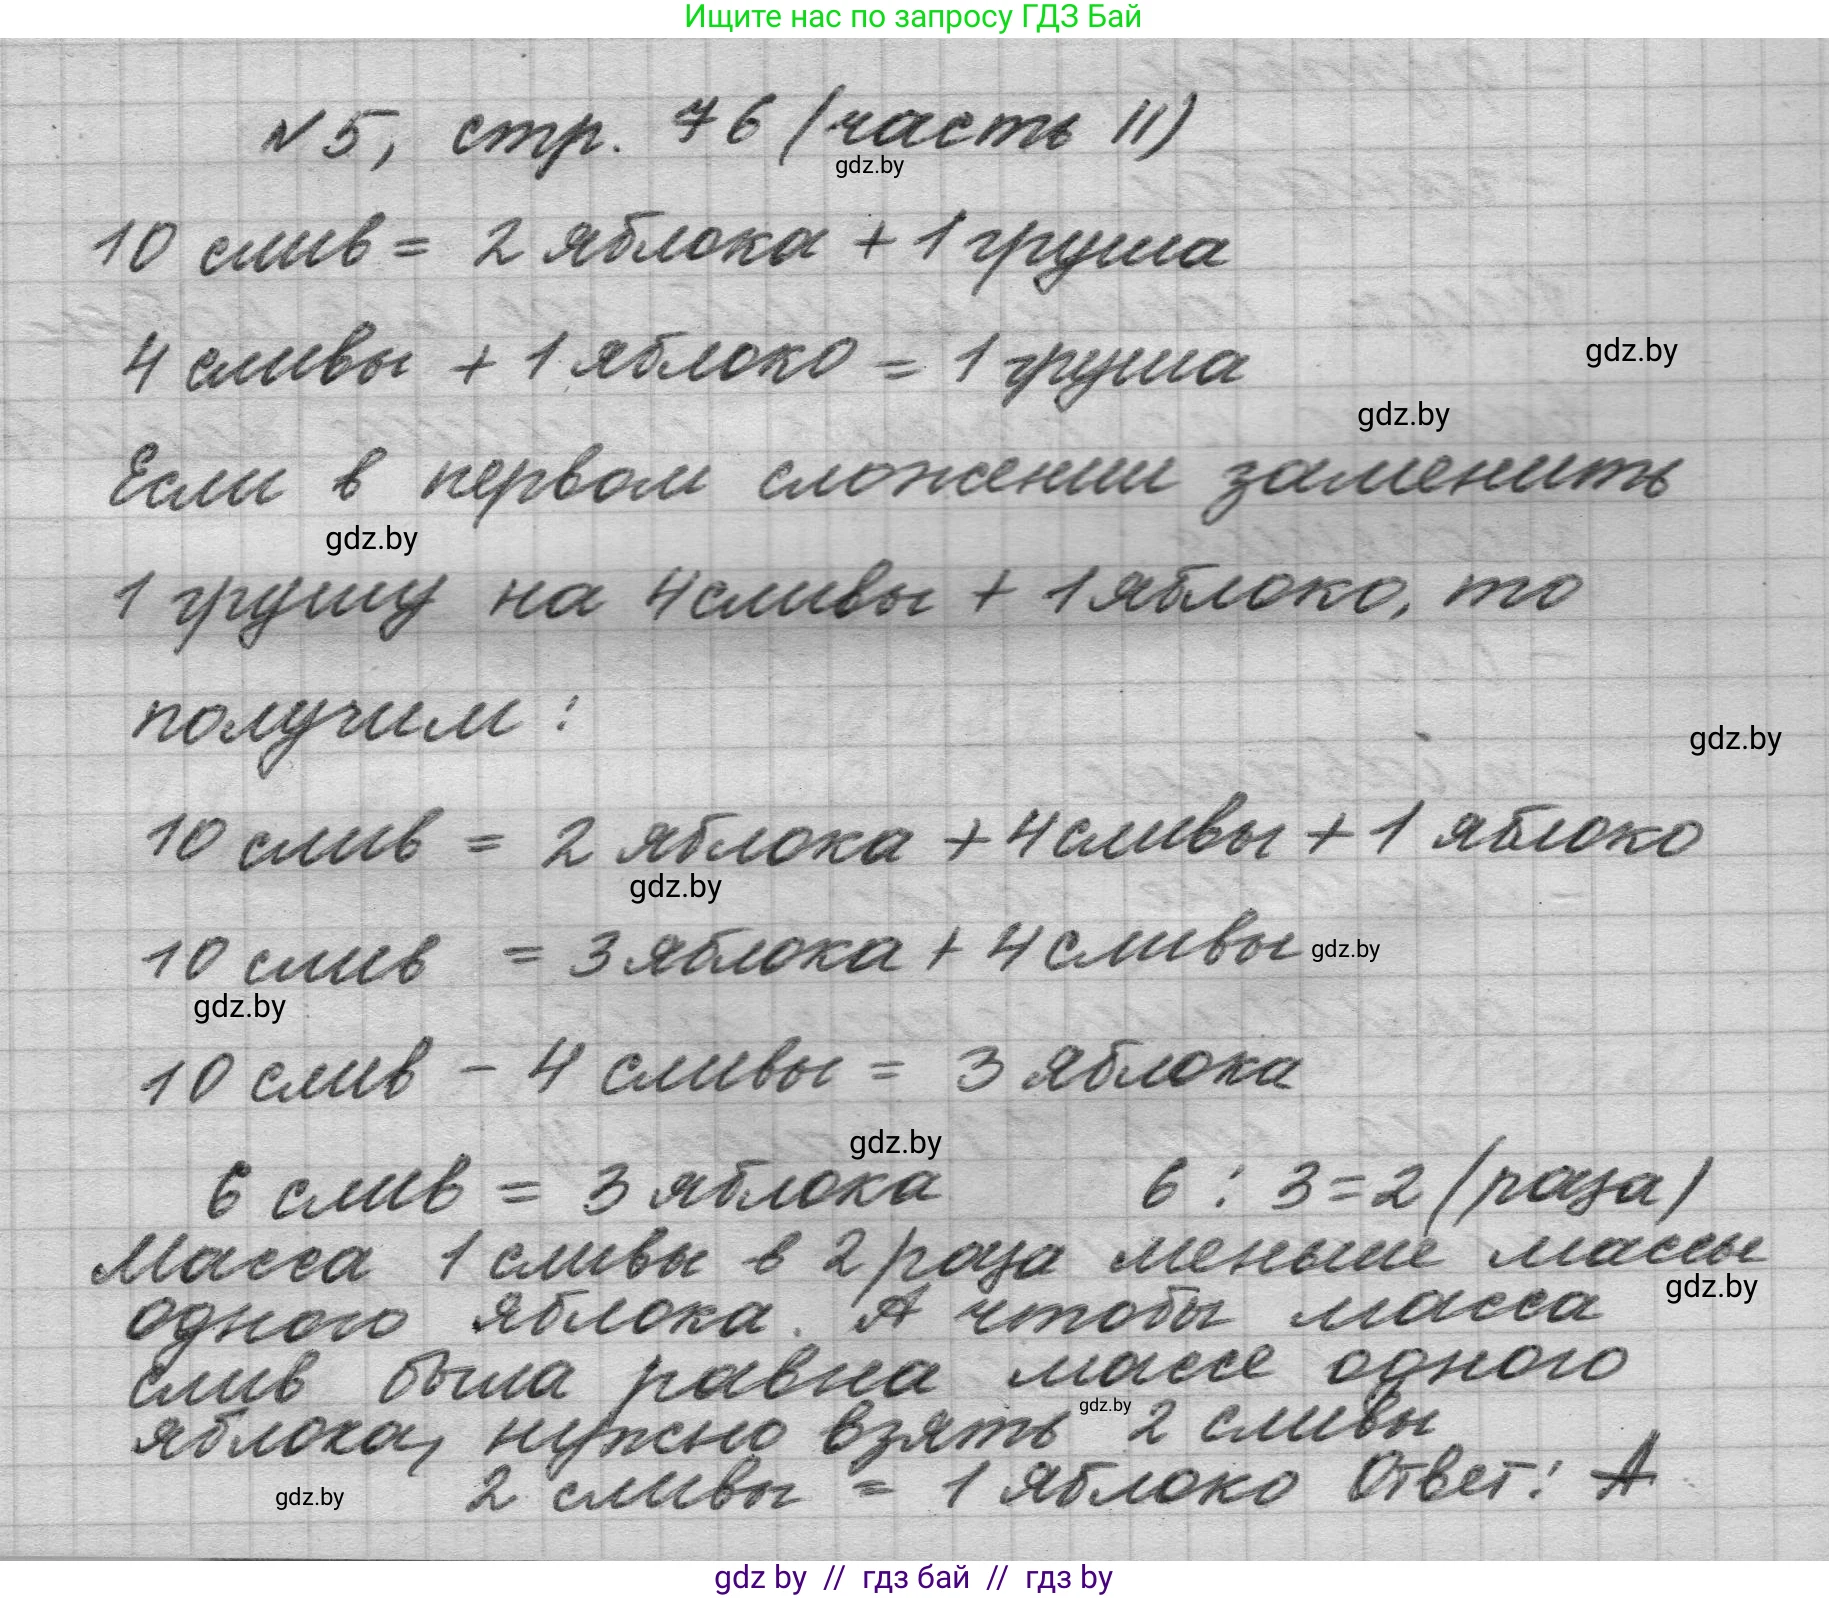 Ищите нас по запросу ГДЗ Бай
№5, стр. 76 (часть II)
gdz.by
10 слив = 2 яблока + 1 груша
4 сливы + 1 яблоко = 1 груша
gdz.by
gdz.by
Если в первом сложении заменить
gdz.by
1 грушу на 4 сливы + 1 яблоко, то
получим:
gdz.by
10 слив = 2 яблока + 4 сливы + 1 яблоко
gdz.by
10 слив = 3 яблока + 4 сливы
gdz.by
gdz.by
10 слив - 4 сливы = 3 яблока
gdz.by
6 слив = 3 яблока 6 : 3 = 2 (раза)
Масса 1 сливы в 2 раза меньше массы
gdz.by
одного яблока. А чтобы масса
слив была равна массе одного
gdz.by
яблока, нужно взять 2 сливы
2 сливы = 1 яблоко Ответ: А
gdz.by
gdz by // гдз бай // гдз by